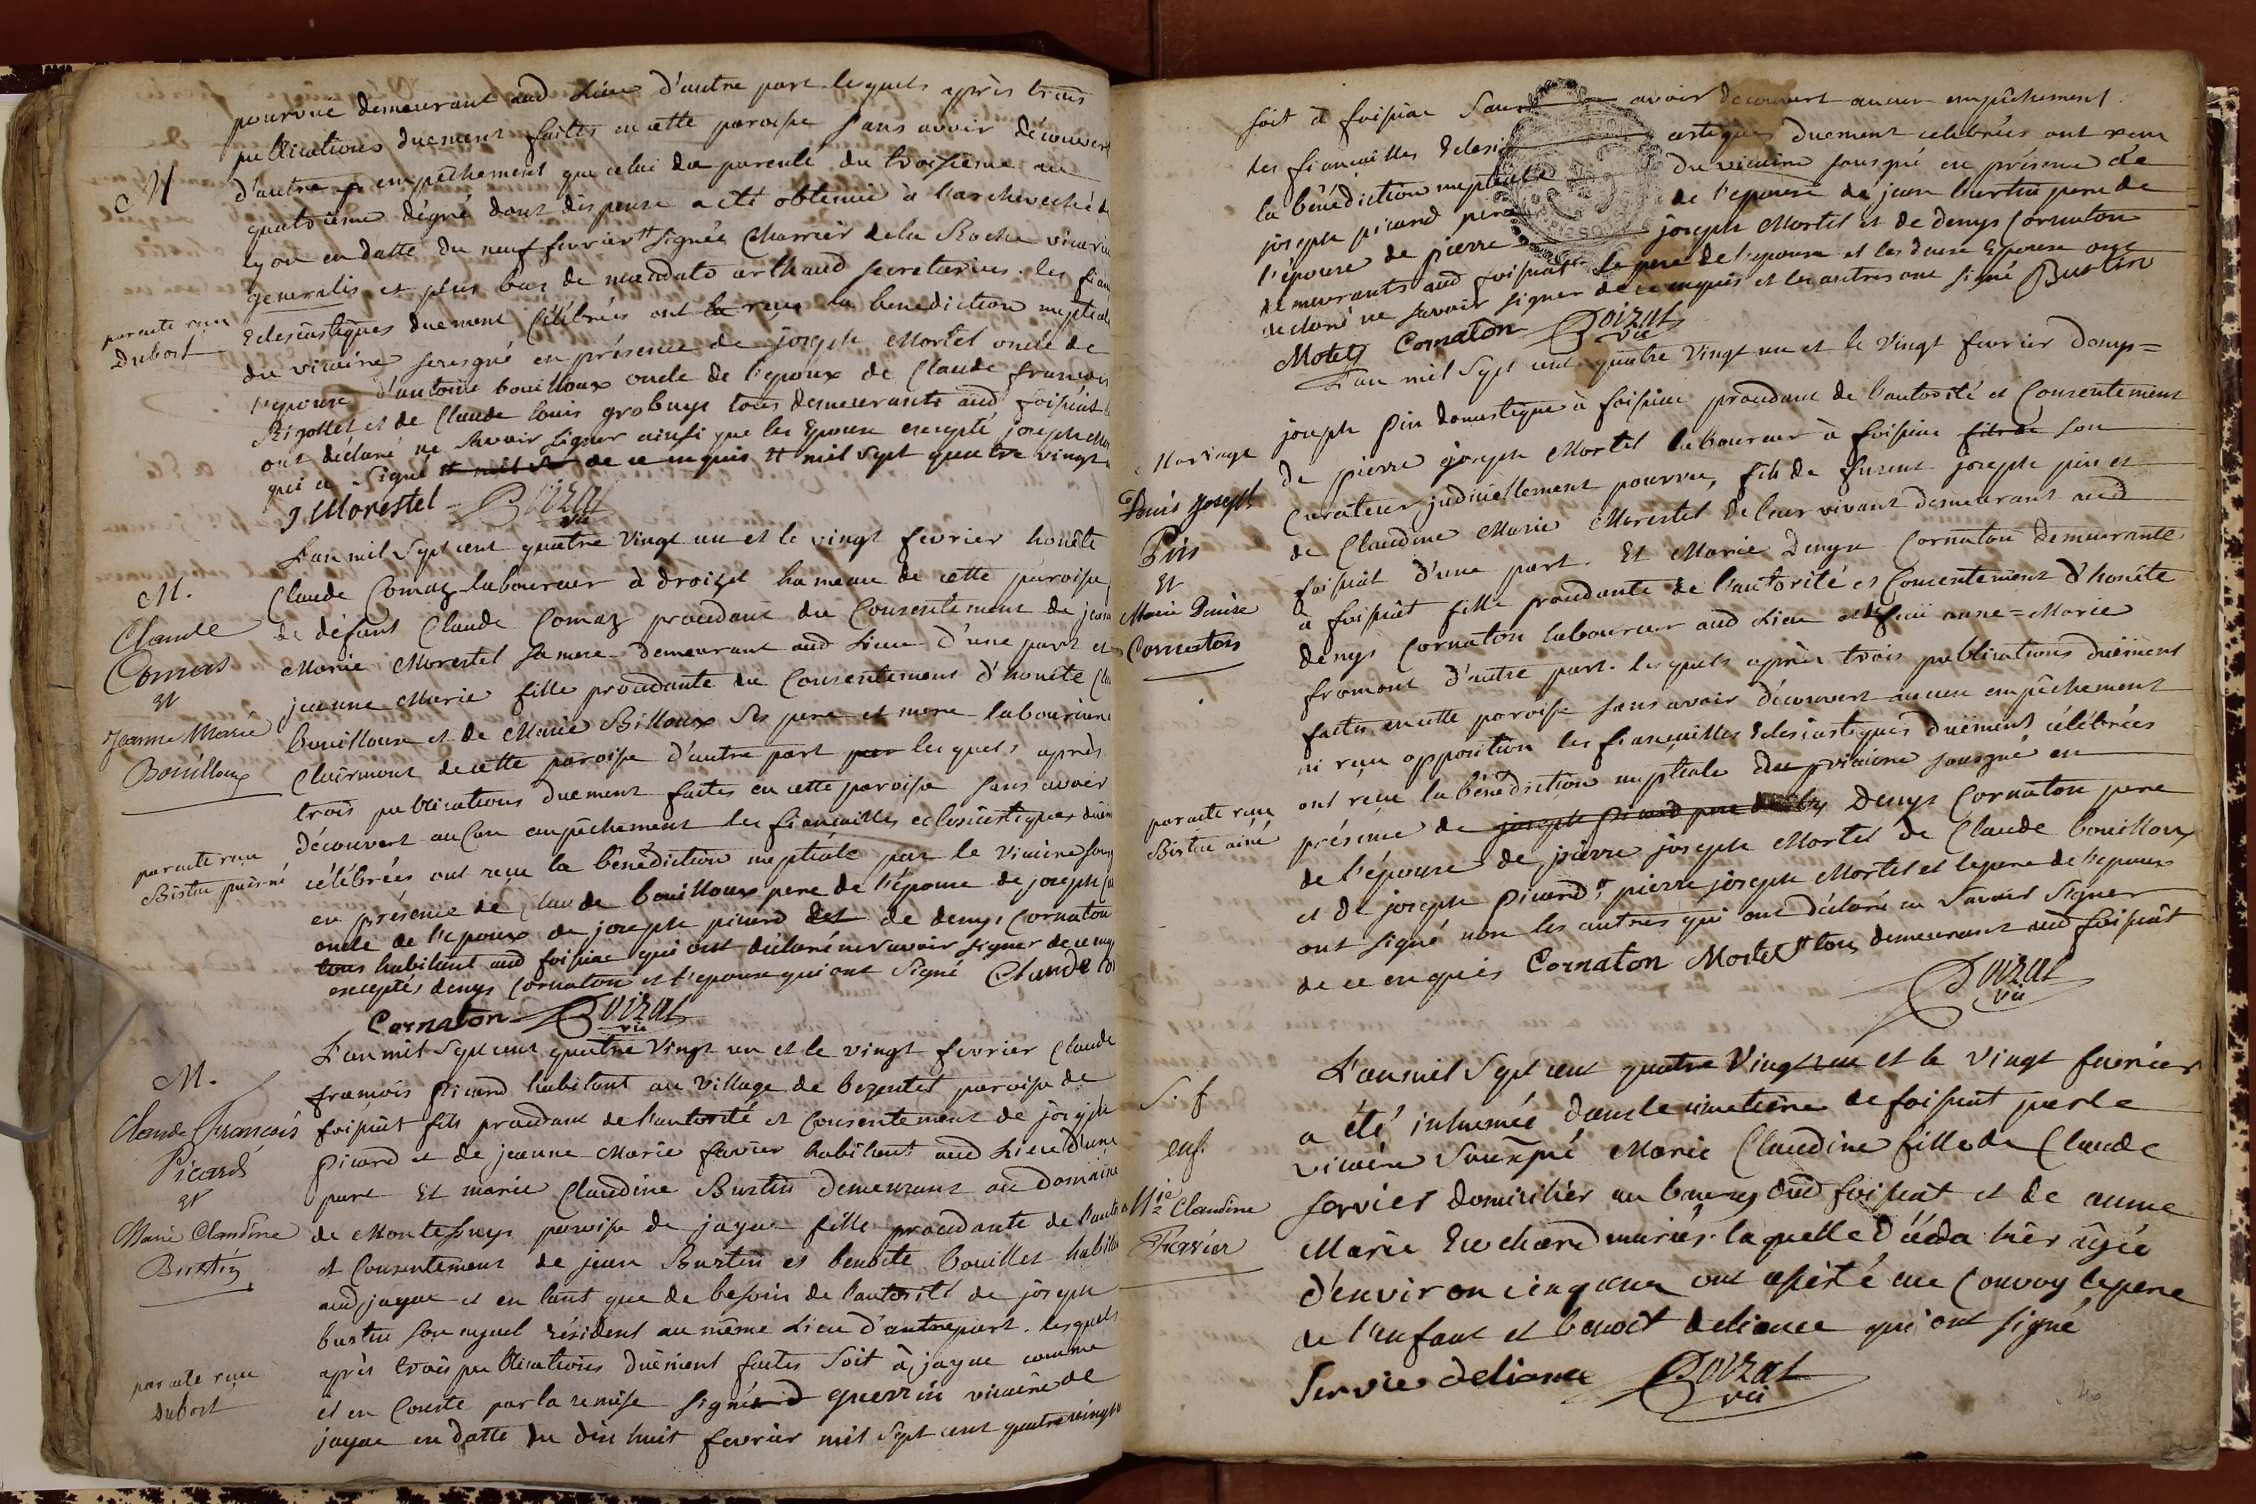 pourvue demeurant aud Lieu d'autre part lesquels après trois
publications duement faites en cette paroisse sans avoir découvert
M
d'autre empêchement que celui de parenté du troisieme au
quatrieme dégré dont dispense a été obtenue à l'archeveché de
Lyon en datte du neuf fevrier signée Charrier dela Roche vicarius
generalis et plus bas de mandato arthaud secretarius. les fian
par acte reçu
Dubost
Eclesiastiques duement Célébrées ont la reçu la benediction nuptiale
du vicaire sousgné en présence de joseph Mortel oncle de
l'epouse d'antoine bouilloux oncle de l'epoux de Claude françois
Rigollet et de Claude louis grobuys tous demeurants aud foissiat
ont déclaré ne savoir signer ainsi que les Epoux excepté joseph
qui a signé de ce enquis mil sept quatre vingt
J Morestel Doizat
vic
L'an mil sept cent quatre vingt un et le vingt fevrier honête
M.
Claude
Comas
et
Jeanne Marie
Bouilloux
Claude Comaz laboureur à droizet hameau de cette paroisse
de défunt Claude Comaz procedant du Consentement de jeanne
Marie Morestel sa mere demeurant aud Lieu d'une part et
jeanne Marie fille procedante du Consentement d'honête
bouilloux et de Marie Billoux ses pere et mere laboureurs
Clairmont de cette paroisse d'autre part par lesquels après
trois publications duement faites en cette paroisse sans avoir
découvert aucun empêchement les fiançailles eclesiastiques
par acte reçu
Bistue puisné
célébrées ont reçu la bénédiction nuptiale par le Vicaire
en présence de Claude bouilloux pere de l'épouse de joseph
oncle de l'epoux de joseph picard et de denys Cornaton
tous habitant aud foissiac qui ont déclaré ne savoir signer de ce
exceptés denys Cornaton et l'epoux qui ont signé Claude
Cornaton Doizat
vic
L'an mil sept cent quatre Vingt un et le vingt fevrier Claude
M.
Claude François
Picard
et
Marie Claudine
Burtin
françois Picard habitant au Village de bezentet paroisse de
foissiat fils procedant de l'autorité et Consentement de joseph
Picard et de jeanne Marie favier habitant aud Lieu d'une
part Et marie Claudine Burtin demeurant au domaine
de Montefney paroisse de jayac fille procedante de l'auto
et Consentement de jean Burtin et benoite bouillet
aud jayac et en tant que de besoin de l'autorité de joseph
burtin son ayeul résident au même Lieu d'autre part. lesquels
par acte reçu
Dubost
après trois publications duëment faites soit à jayac comme
et en Conste par la remise signée guerrin vicaire de
jayac en datte du dix huit fevrier mil sept cent quatre vingt
soit à foissiac sans avoir découvert aucun empêchement
les fiançailles Eclesiastiques duement celebrées ont reçu
la bénédiction nuptiale du vicaire sousgné en présence de
joseph picard pere de l'epoux de jean burtin pere de
l'épouse de pierre joseph Mortel et de denys Cornaton
demeurants aud foissiat le pere de l'epoux et les deux Epoux ont
declaré ne savoir signer de ce enquis et les autres ont signé Burtin
Motely Cornaton Doizat
vic
L'an mil sept cent quatre Vingt un et le Vingt fevrier denys=
Mariage
Denis Joseph
Pin
et
Marie Denise
Cornaton
joseph Pin domestique à foissiac procedant de l'autorité et Consentement
de pierre joseph Mortel laboureur à foissiac fils de son
Curateur judiciellement pourvu, fils de furent joseph pin et
de Claudine Marie Morestel de leur vivant demeurant aud
foissiat d'une part. Et Marie Denyse Cornaton demeurante
à foissiat fille procedante de l'autorité et Consentement d'honête
denys Cornaton laboureur aud Lieu et de feüe anne=Marie
fromont d'autre part. lesquels après trois publications duëment
faites en cette paroisse sans avoir découvert aucun empêchement
ni reçu opposition les fiançailles Eclesiastiques duëment célébrées
par acte reçu
Bistue ainé
ont reçu la bénédiction nuptiale du vicaire sousgné en
présence de joseph Picard pere Denys Cornaton pere
de l'épouse de pierre joseph Mortel de Claude bouilloux
et de joseph Picard, pierre joseph Mortel et le pere de l'epouse
ont signé non les autres qui ont déclaré ne savoir signer
de ce enquis Cornaton Motel tous demeurant aud foissiat
Doizat
vic
L'an mil sept cent quatre Vingt un et le Vingt fevrier
S. f
enf.
Mie Claudine
Fervier
a été inhumée dans le cimetière de foissiat par le
vicaire Sousigné Marie Claudine fille de Claude
fervier domicilié au bourg dud foissiat et de anne
Marie Euchard mariés. laquelle décéda hier âgée
d'environ cinq ans ont assisté au Convoy le pere
de l'enfant et benoit deliance qui ont signé
Servie deliance Doizat
vic